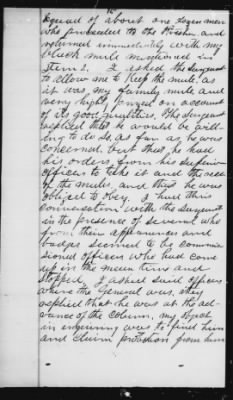 squad of about one dozen men
who proceeded to the Kitchen and
returned immediately with my
black mule mentioned in
Item 1. I asked the Sergeant
to allow me to keep the mule, as
it was my family mule and
very highly prized on account
of its good qualities. The Sergeant
replied that he would be will-
ing to do so, as far as he was
concerned, but that he had
his orders from his superior
officer to take it and the rest
of the mules, and that he was
obliged to obey. I had this
conversation with the Sergeant
in the presence of several who
from their appearances and
badges seemed to be commis-
sioned officers who had come
up in the mean time and
stopped. I asked said officers
where the General was, they
replied that he was at the ad-
vance of the column, my object
in enquiring was to find him
and claim protection from him